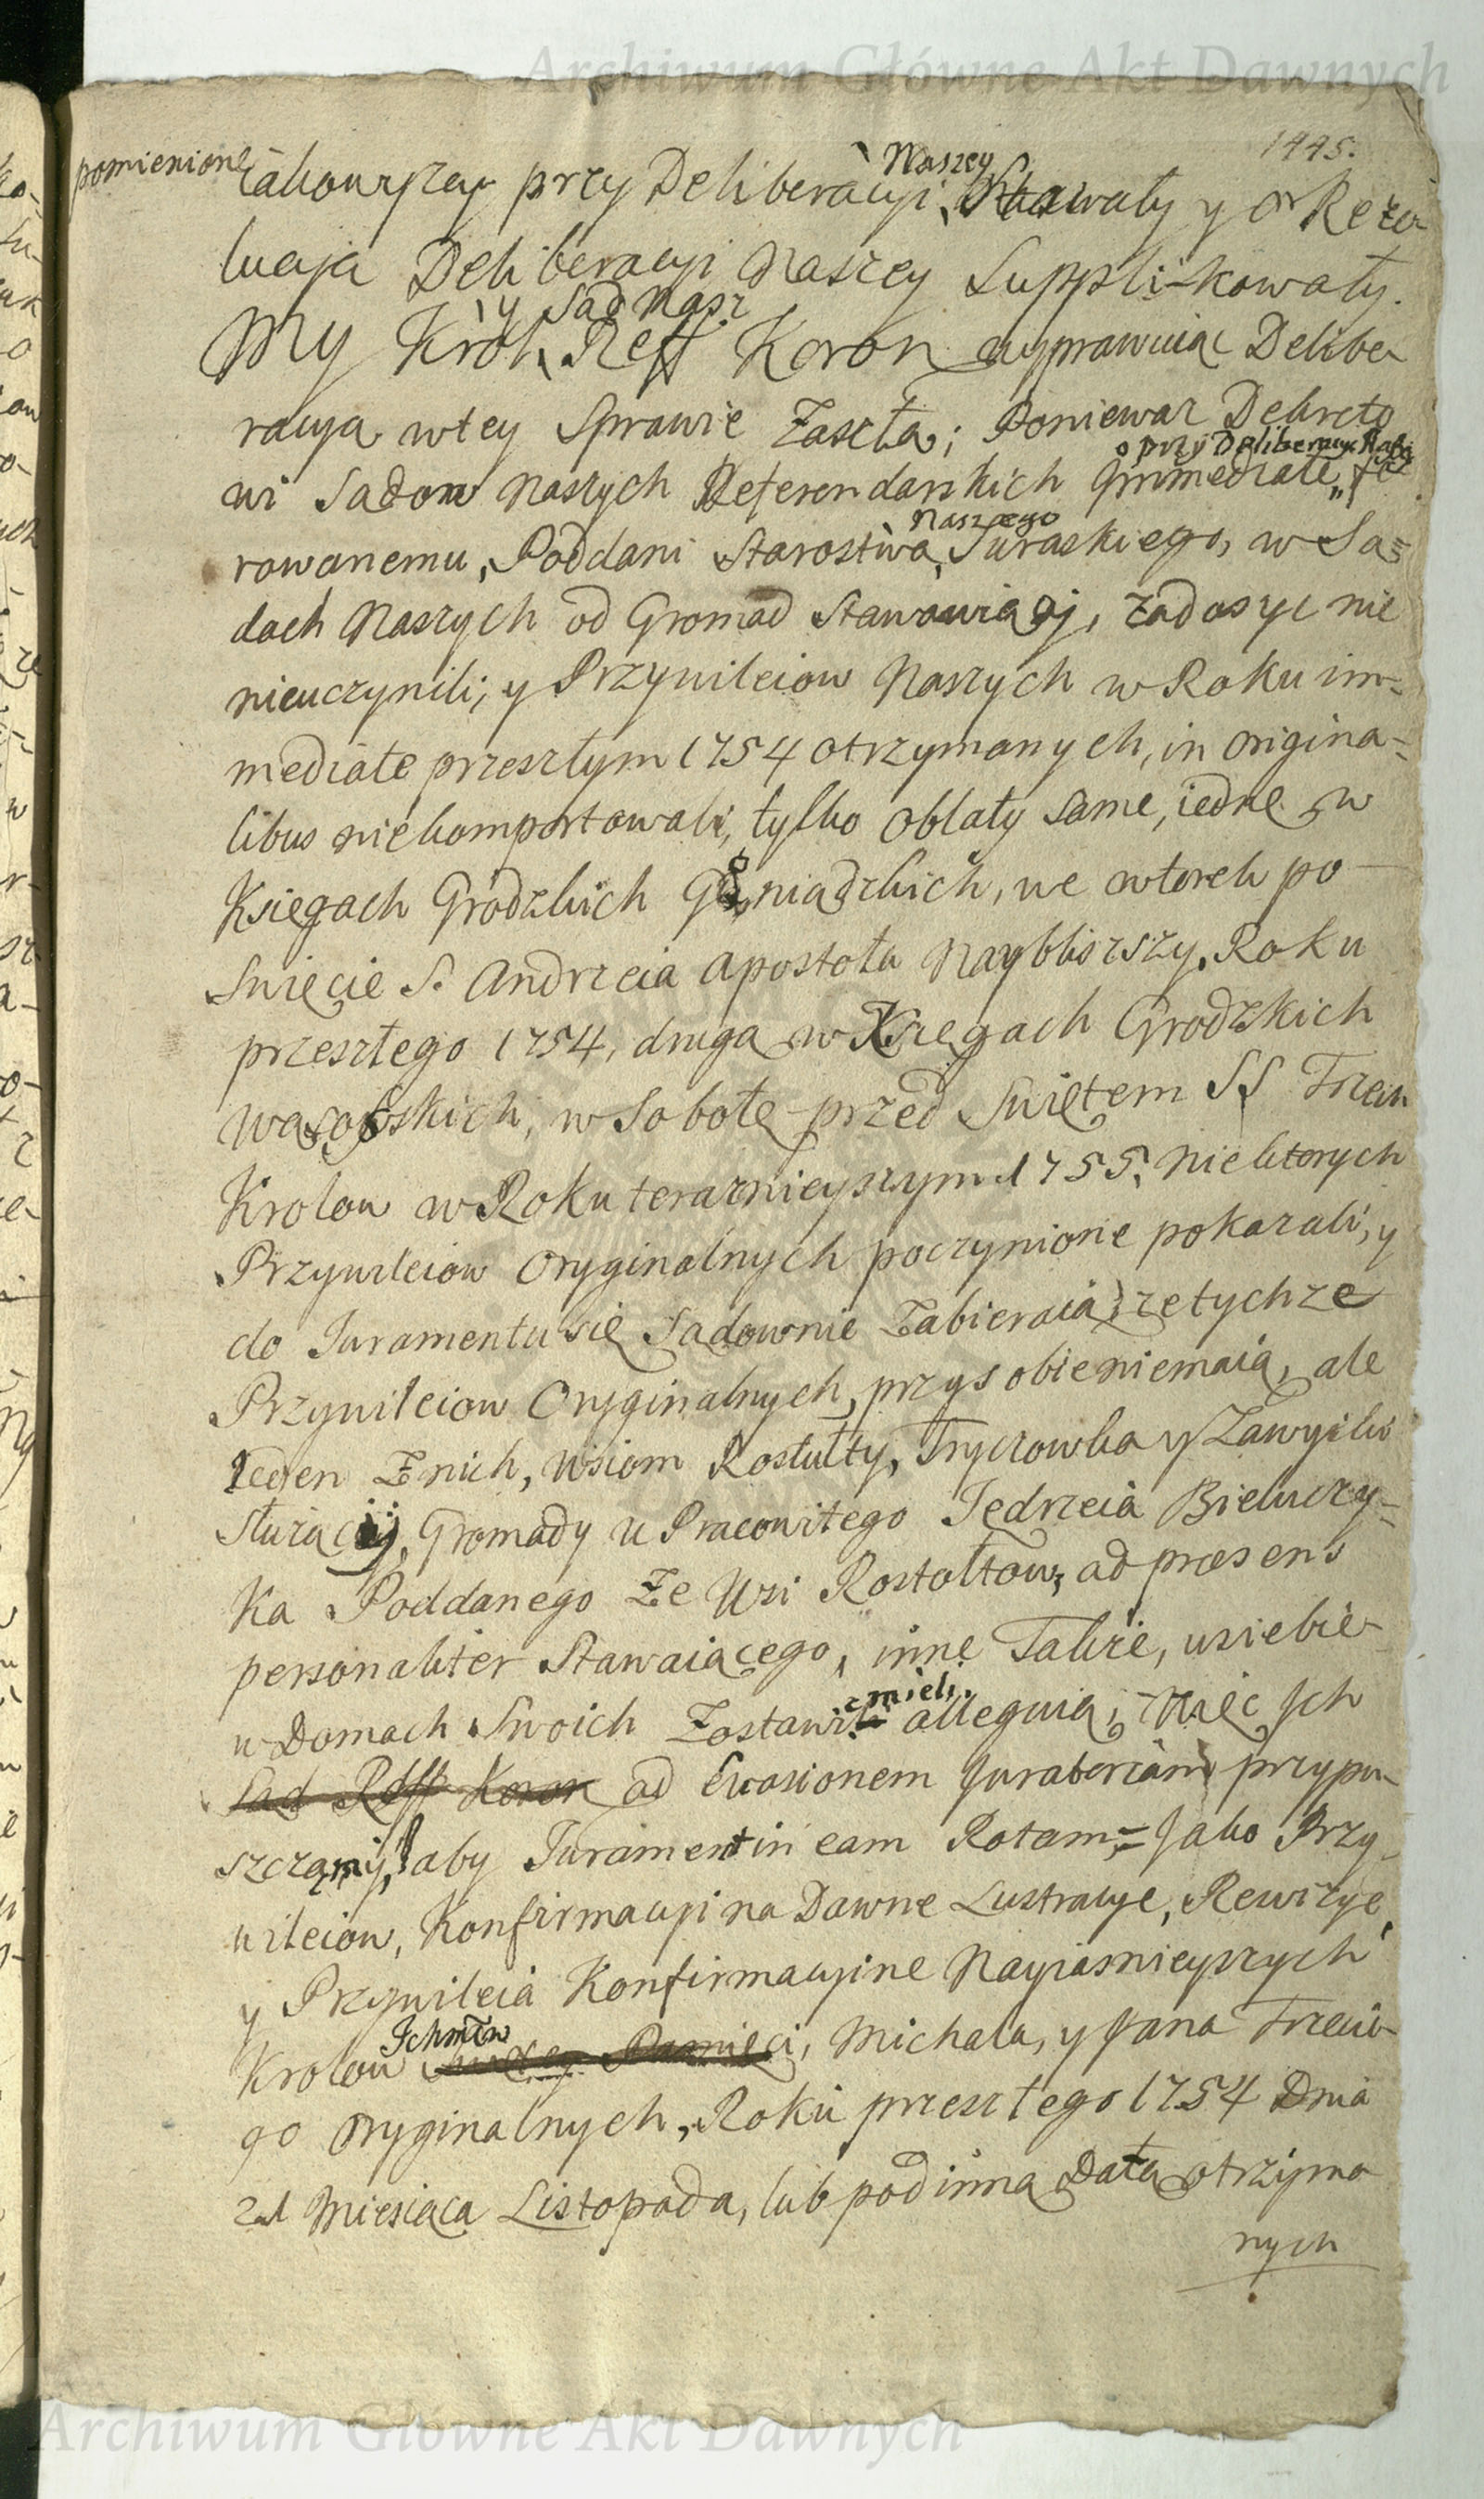 Archiwum Główne Akt Dawnych
1445.
pomienione
Naszey
przy Deliberacyi Stawały y o Rezo-
lucyą Deliberacyi Naszey Supplikowały.
y Sąd Nasz
My Krol, Reff Koron wyprawuiąc Delibe-
racyą w tey Sprawie Zaszłą; Ponieważ Dekreto
o przy Deliberacyi
wi Sadow Naszych Referendarskich Immediate, fe-
Naszego
rowanemu, Poddani Starostwa, Suraskiego, w Są-
dach Naszych od Gromad Stawaiący, zadosyc nie
nieuczynili; y Przywileiow Naszych w Roku im-
mediate przeszłym 1754 otrzymanych, in origina-
libus niekomportowali, tylko oblaty same, iedne w
Księgach Grodzkich Goniądzkich, we wtorek po
Swięcie S. Andrzeia Apostoła Naybliższy, Roku
przeszłego 1754, drugą w Xięgach Grodzkich
Wąsoskich, w Sobotę przed Swiętem SS Trzech
Krolow w Roku teraznieyszym 1755, niektorych
Przywileiow Oryginalnych poczynione pokazali, y
do Juramentu się Sadownie Zabieraią, ze tychze
Przywileiow Oryginalnych, przy sobie niemaią, ale
Ieden Z nich, Wsiom Rostułty, Tryczowka y Zawyki
Służący, Gromady u Pracowitego Jędrzeia Bieluczy-
ka Poddanego Ze Wsi Rostołtow, ad præsens
personaliter Stawaiącego, inne Takie, u siebie
zmieli
w Domach Swoich Zostawili alleguią; Więc Ich
Sąd Reff Koron ad Evasionem Juratoriam przypu-
szczamy, aby Jurament in eam Rotam = Jako Przy-
wileiow, Konfirmacyi na Dawne Lustracye, Rewizye,
y Przywileia Konfirmacyine Nayiasnieyszych
Ichmciw
Krolow Swiętey Pamięci, Michała, y Jana Trzecie-
go Oryginalnych, Roku przeszłego 1754 Dnia
21 Miesiąca Listopada, lub pod inną Datą otrzyma
nych
Archiwum Główne Akt Dawnych